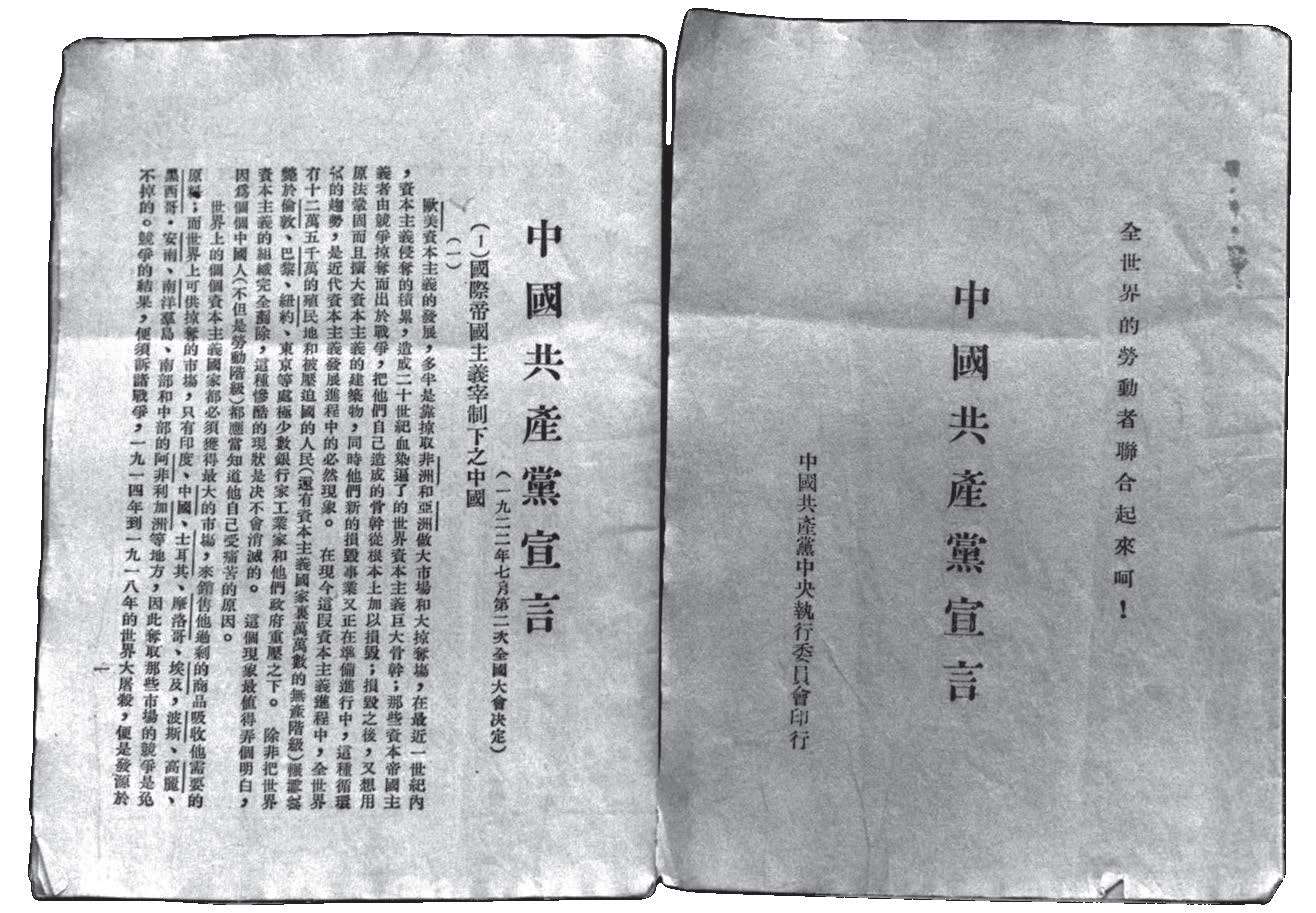 全世界的勞動者聯合起來呵！
中國共產黨宣言
中國共產黨中央執行委員會印行
中國共產黨宣言
（一九二二年七月第二次全國大會决定）
（1）國際帝國主義宰制下之中國
（一）
歐美資本主義的發展，多半是靠掠取非洲和亞洲做大市場和大掠奪場，在最近一世紀內
，資本主義侵奪的積累，造成二十世紀血染遍了的世界資本主義巨大骨幹；那些資本帝國主
義者由競爭掠奪而出於戰爭，把他們自己造成的骨幹從根本上加以損毀；損毀之後，又想用
原法鞏固而且擴大資本主義的建築物，同時他們新的損毀事業又正在準備進行中，這種循環
的趨勢，是近代資本主義發展進程中的必然現象。 在現今這段資本主義進程中，全世界
有十二萬五千萬的殖民地和被壓迫國的人民（還有資本主義國家裏萬萬數的無產階級）輾
於倫敦、巴黎、紐約、東京等處極少數銀行家工業家和他們政府重壓之下。 除非把世界
資本主義的組織完全剷除，這種慘酷的現狀是决不會消滅的。 這個現象最值得弄個明白，
因爲個個中國人（不但是勞動階級）都應當知道他自己受痛苦的原因。
世界上的個個資本主義國家都必須獲得最大的市場，來銷售他過剩的商品吸收他需要的
原料；而世界上可供掠奪的市場，只有印度、中國、土耳其、摩洛哥、埃及，波斯、高麗、
墨西哥・安南、南洋羣島、南部和中部的阿非利加洲等地方，因此奪取那些市場的競爭是免
不掉的。競爭的結果，便須訴諸戰爭，一九一四年到一九一八年的世界大屠殺，便是發源於
一